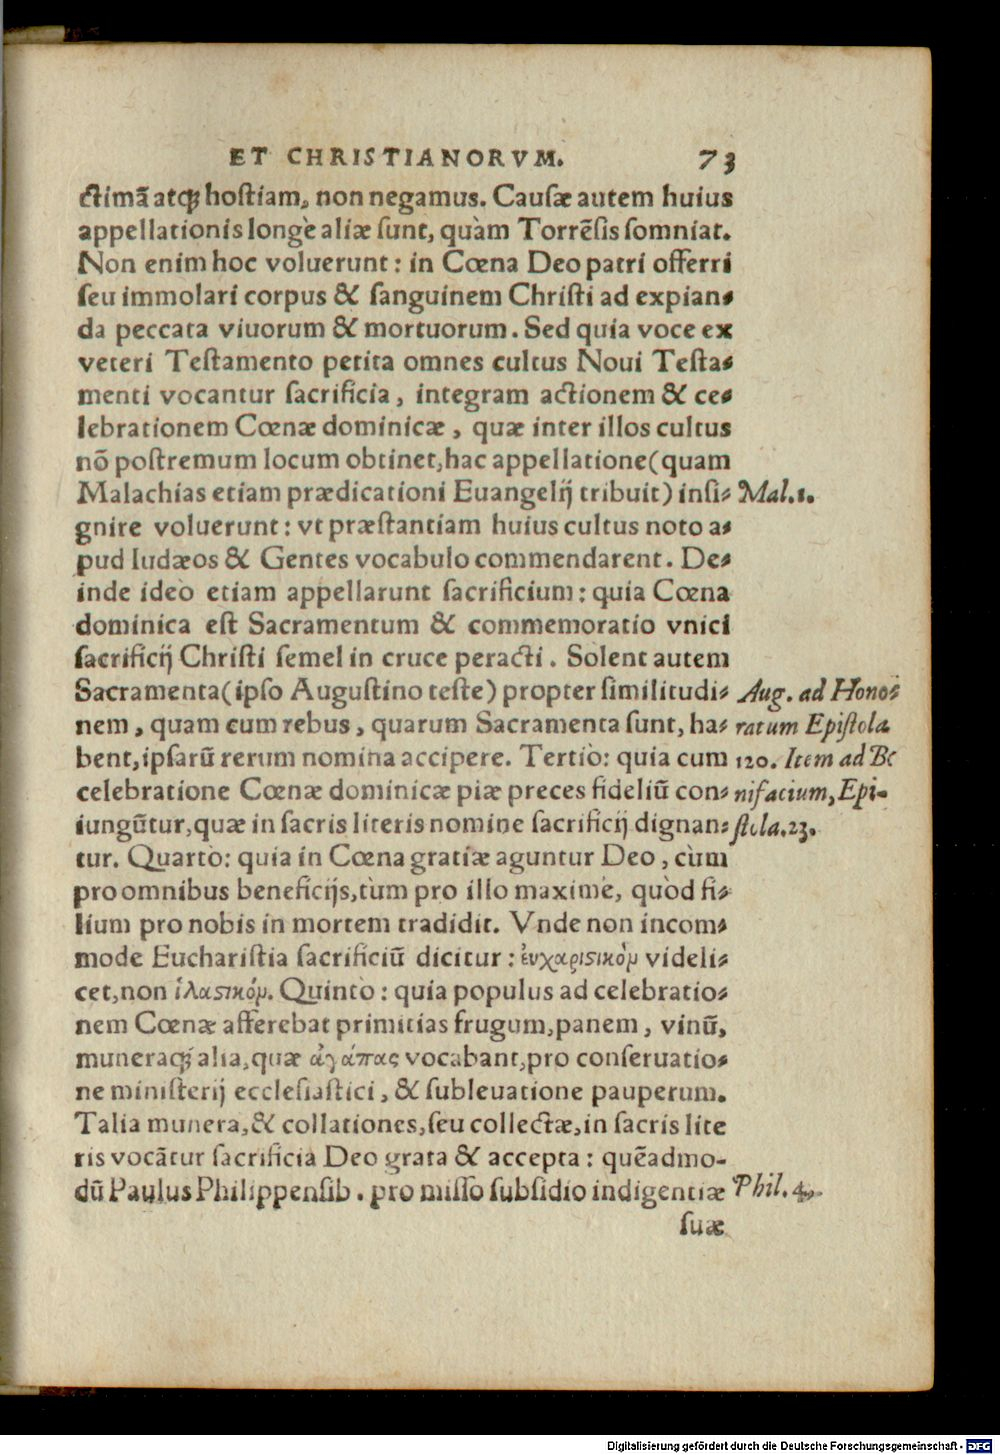 ET CHRISTIANORVM. 73
ctimã atq; hostiam, non negamus. Causæ autem huius
appellationis longè aliæ sunt, quàm Torrēsis somniat.
Non enim hoc voluerunt: in Cœna Deo patri offerri
seu immolari corpus & sanguinem Christi ad expian-
da peccata viuorum & mortuorum. Sed quia voce ex
veteri Testamento petita omnes cultus Noui Testa-
menti vocantur sacrificia, integram actionem & ce-
lebrationem Cœnæ dominicæ, quæ inter illos cultus
nō postremum locum obtinet, hac appellatione (quam
Malachias etiam prædicationi Euangelij tribuit) insi- Mal.1.
gnire voluerunt: vt præstantiam huius cultus noto a-
pud Iudæos & Gentes vocabulo commendarent. De-
inde ideò etiam appellarunt sacrificium: quia Cœna
dominica est Sacramentum & commemoratio vnici
sacrificij Christi semel in cruce peracti. Solent autem
Sacramenta (ipso Augustino teste) propter similitudi- Aug. ad Hono-
nem, quam cum rebus, quarum Sacramenta sunt, ha- ratum Epistola
bent, ipsarũ rerum nomina accipere. Tertiò: quia cum 120. Item ad Bo
celebratione Cœnæ dominicæ piæ preces fideliũ con- nifacium, Epi-
iungũtur, quæ in sacris literis nomine sacrificij dignan- stola.23.
tur. Quartò: quia in Cœna gratiæ aguntur Deo, cùm
pro omnibus beneficijs, tùm pro illo maximè, quòd fi-
lium pro nobis in mortem tradidit. Vnde non incom-
mode Eucharistia sacrificiũ dicitur: ἐυχαριστικὸμ videli-
cet, non ἱλαστικόμ. Quintò: quia populus ad celebratio-
nem Cœnæ afferebat primitias frugum, panem, vinũ,
muneraq; alia, quæ ἀγάπας vocabant, pro conseruatio-
ne ministerij ecclesiastici, & subleuatione pauperum.
Talia munera, & collationes, seu collectæ, in sacris lite
ris vocãtur sacrificia Deo grata & accepta: quēadmo-
dũ Paulus Philippensib. pro misso subsidio indigentiæ Phil. 4.
suæ
Digitalisierung gefördert durch die Deutsche Forschungsgemeinschaft - DFG